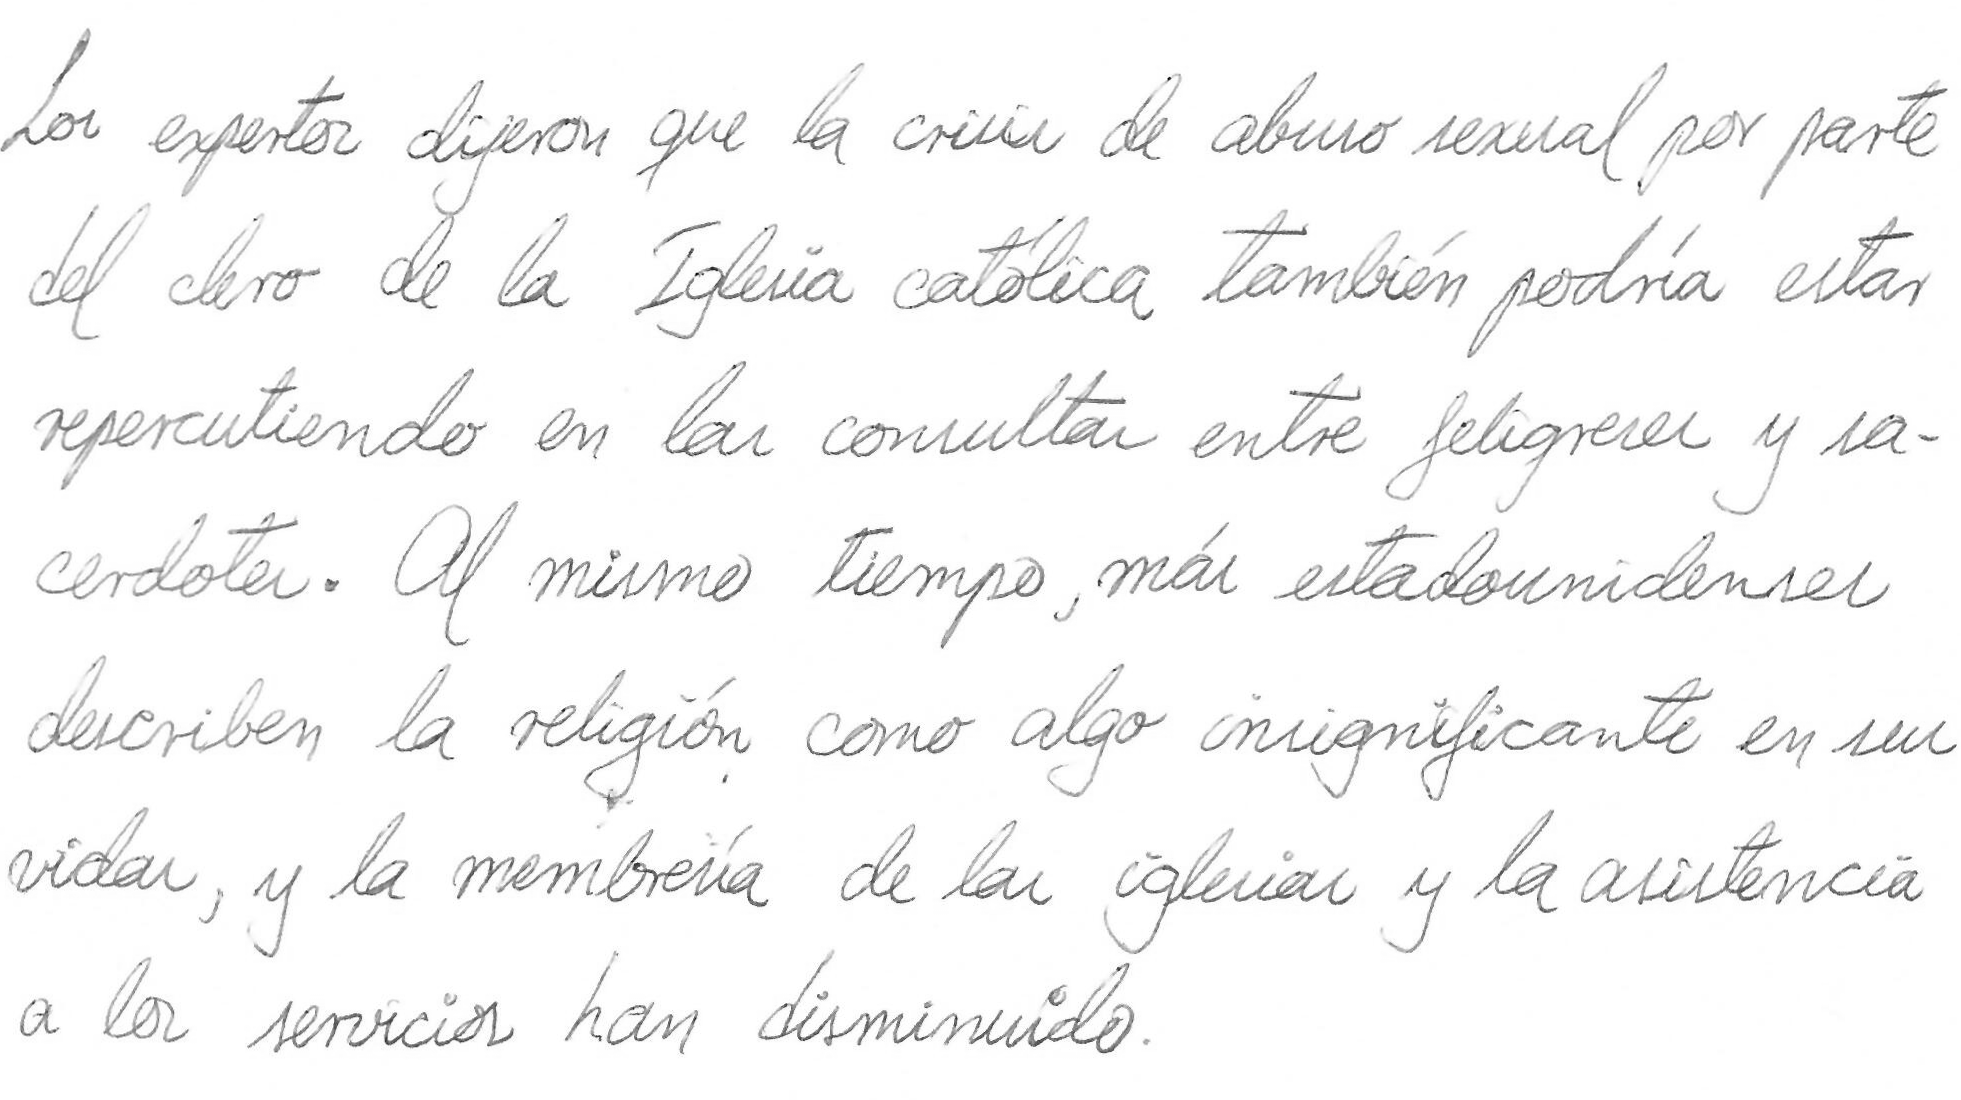 Los expertos dijeron que la crisis de abuso sexual por parte
del clero de la Iglesia católica también podría estar
repercutiendo en las consultas entre feligreses y sa-
cerdotes. Al mismo tiempo, más estadounidenses
describen la religión como algo insignificante en sus
vidas, y la membresía de las iglesias y la asistencia
a los servicios han disminuido.